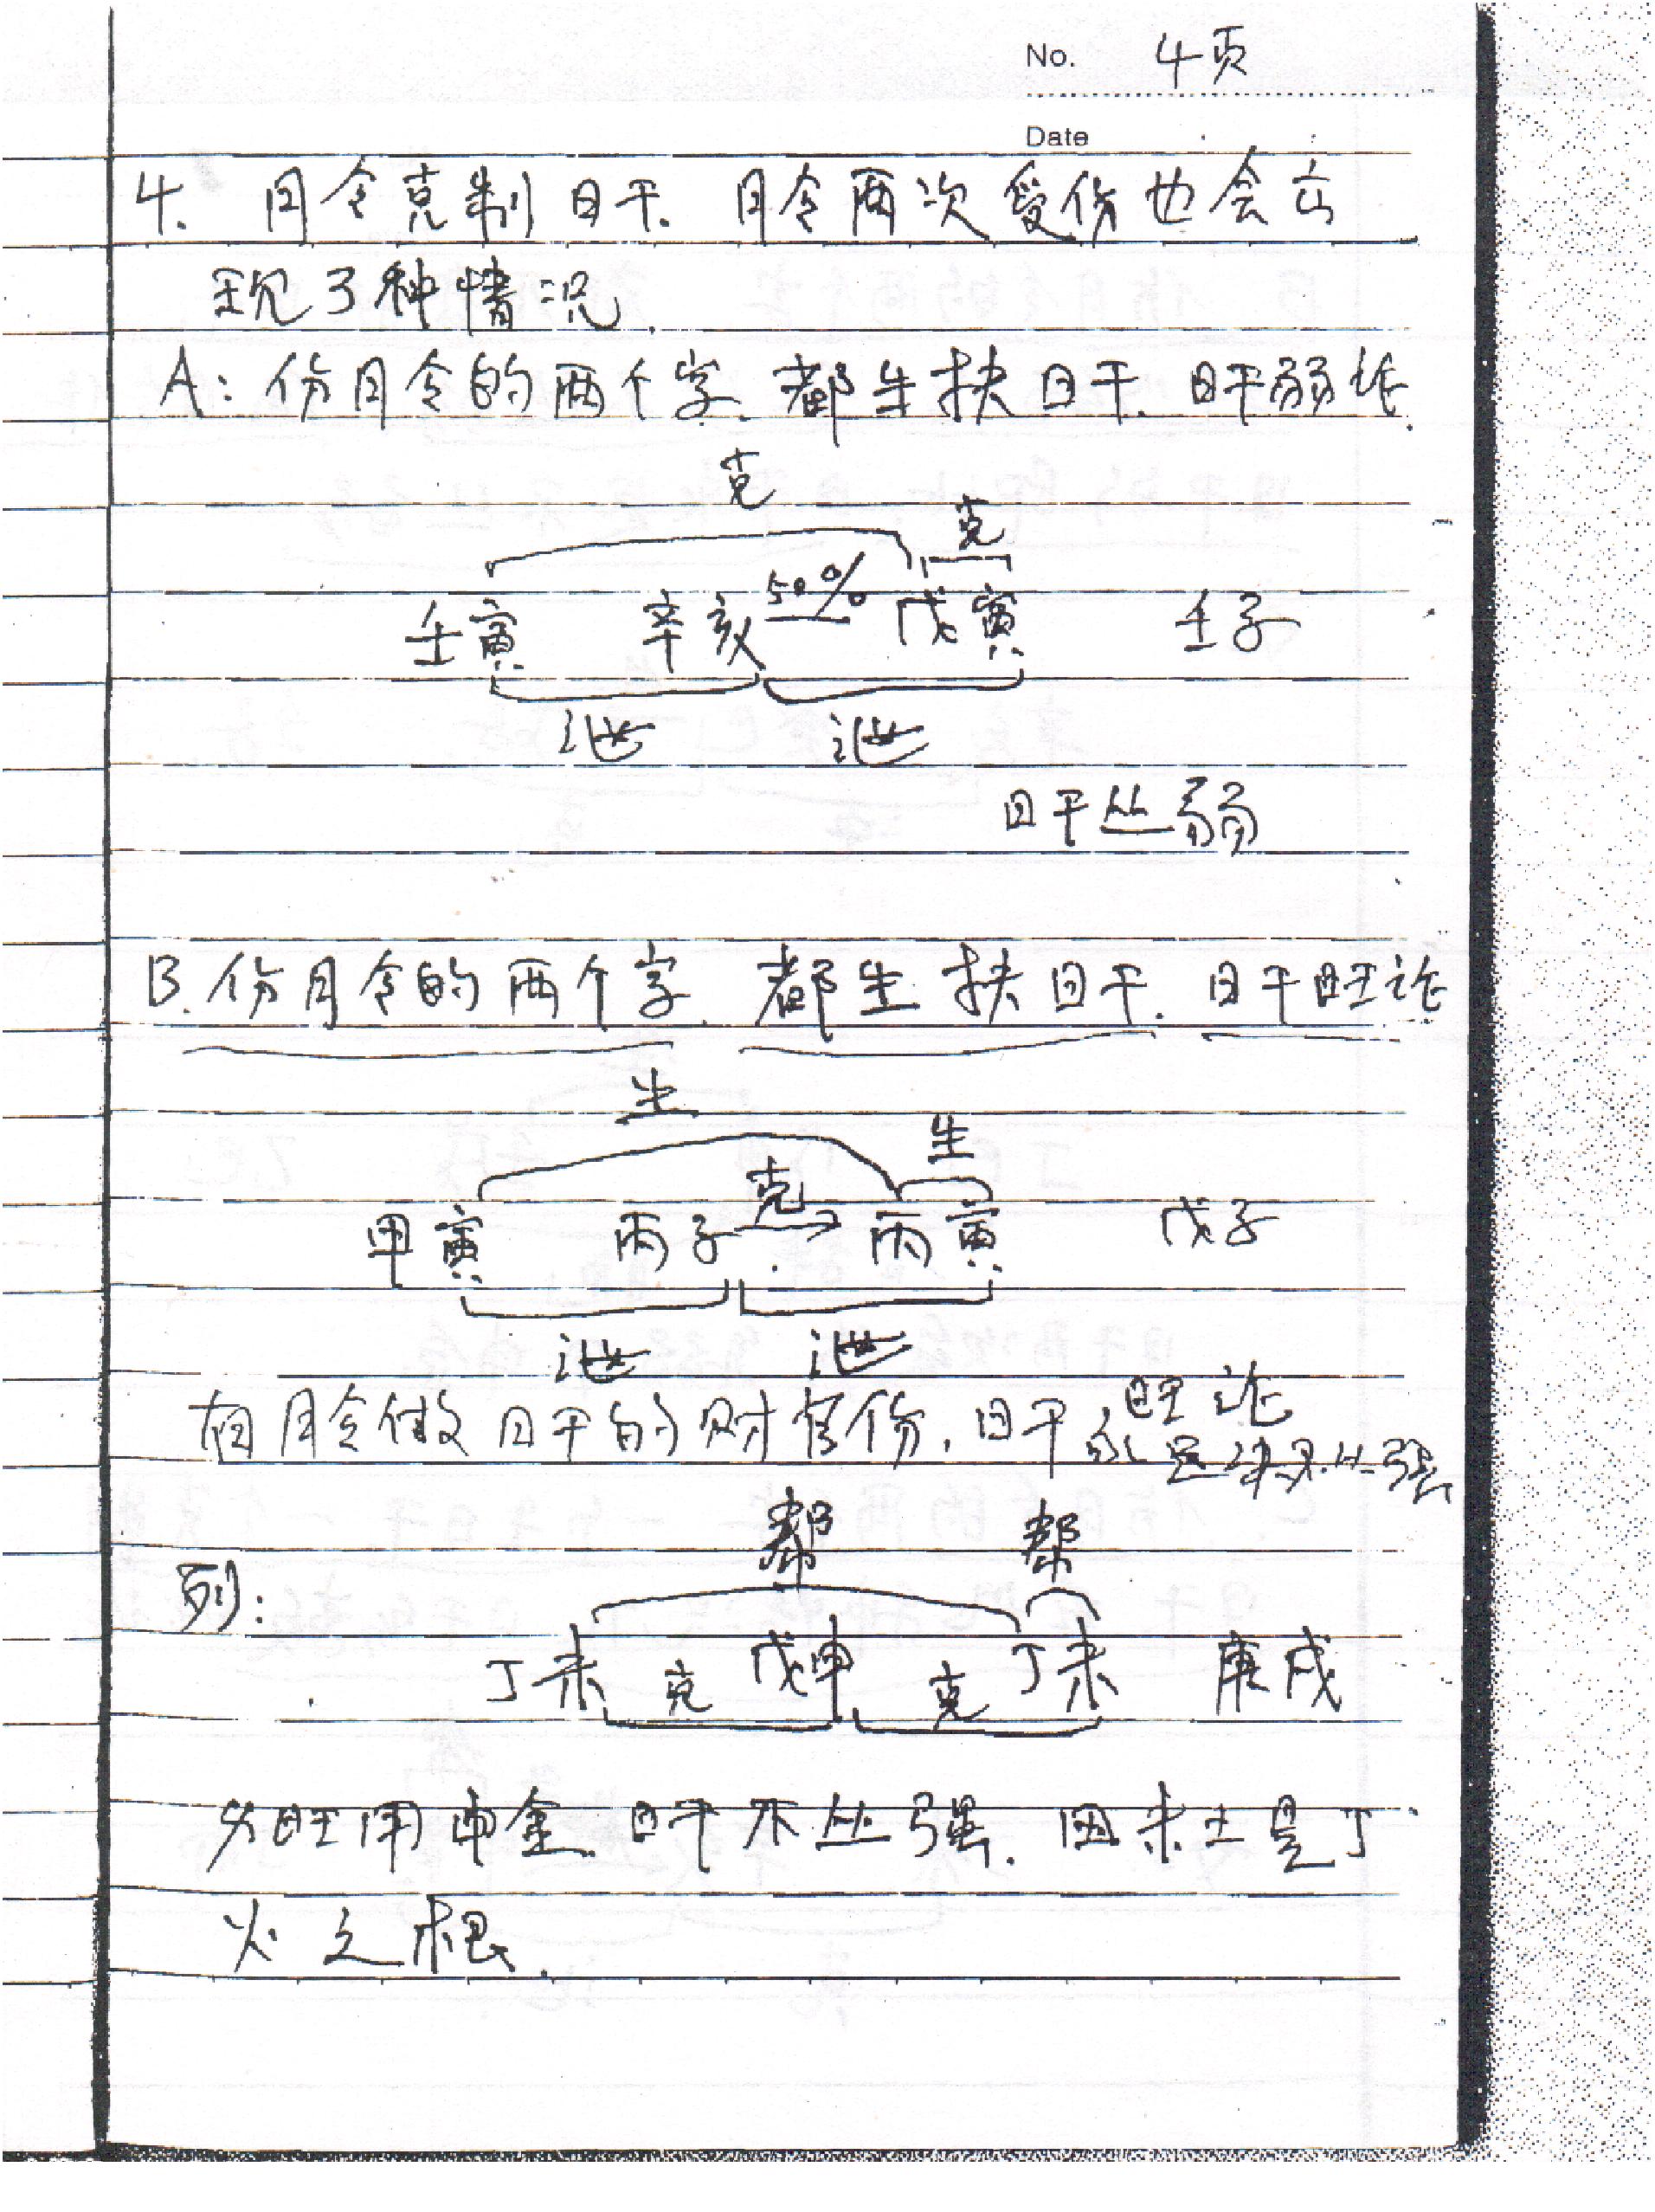 No. 4页
Date
4. 月令克制日干. 月令两次受伤也会出
现3种情况.
A: 伤月令的两个字. 都生扶日干. 日干弱论.
克
克
壬寅 辛亥 50% 戊寅 壬子
泄 泄
日干从弱
B. 伤月令的两个字. 都生扶日干. 日干旺论
生
生
甲寅 丙子 克 丙寅 戊子
泄 泄
月令做日干的财官伤. 日干 旺论
从强
帮 帮
列:
丁未 克 戊申 克 丁未 庚戌
火旺用申金. 日干不从强. 因未土是丁
火之根.